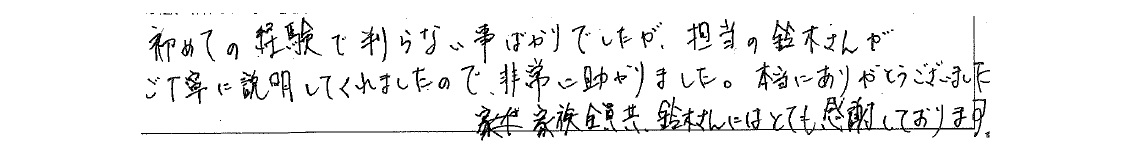 初めての経験で判らない事ばかりでしたが、担当の鈴木さんが
ご丁寧に説明してくれましたので、非常に助かりました。本当にありがとうございました
家族全員共、鈴木さんにはとても感謝しております。